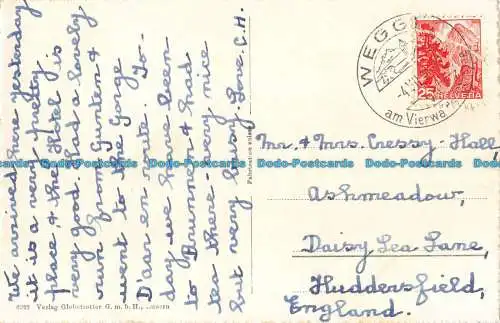 We arrived here yesterday
it is a very pretty
place, & the Hotel is
very good. had a lovely
run from Gunten &
went to the Gorge
D'aar en route. To-
day we have been
to Brunnen & had
tea there - very nice
but very busy. Love C.H.
6292 Verlag Globetrotter G. m. b. H., Luzern
WEGG
am Vierwa
25
HELVETIA
Mr. & Mrs. Cressy-Hall
Ashmeadow,
Daisy Lea Lane,
Huddersfield,
England.
Dodo-Postcards Dodo-Postcards Dodo-Postcards Dodo-Postcards